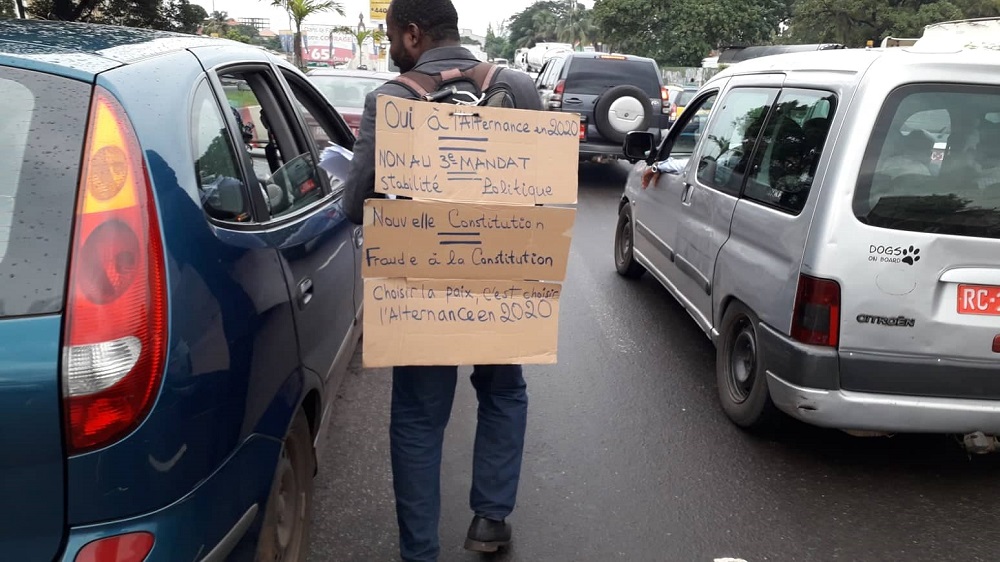 Oui à l'Alternance en 2020
NON AU 3E MANDAT
Stabilité Politique
Nouvelle Constitution
Fraude à la Constitution
Choisir la paix, c'est choisir
l'Alternance en 2020
DOGS
ON BOARD
CITROËN
RC-